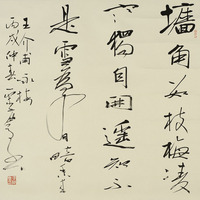 墻角数枝梅凌
寒獨自開遥知不
是雪為有暗香来
王介甫詠梅
丙戌仲春